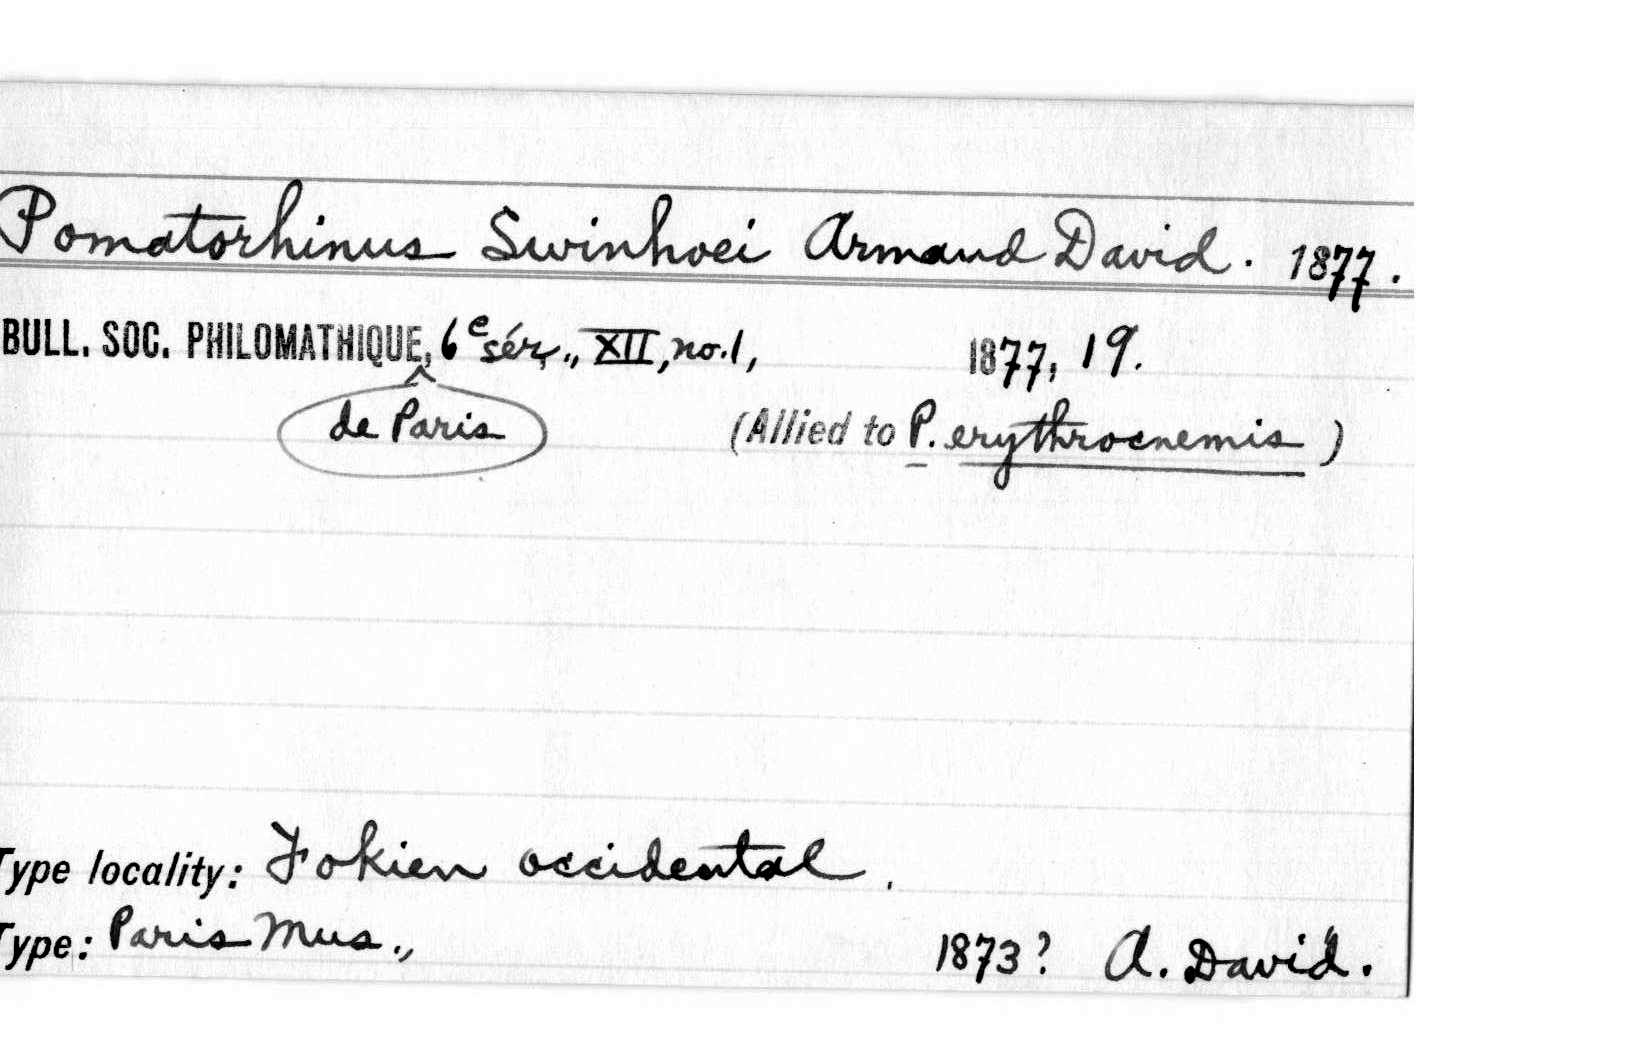 Pomatorhinus Swinhoei Armand David. 1877.
BULL. SOC. PHILOMATHIQUE, 6e sér., XII, no.1, 1877, 19.
de Paris (Allied to P. erythrocnemis)
Type locality: Fokien occidental.
Type: Paris Mus., 1873? A. David.